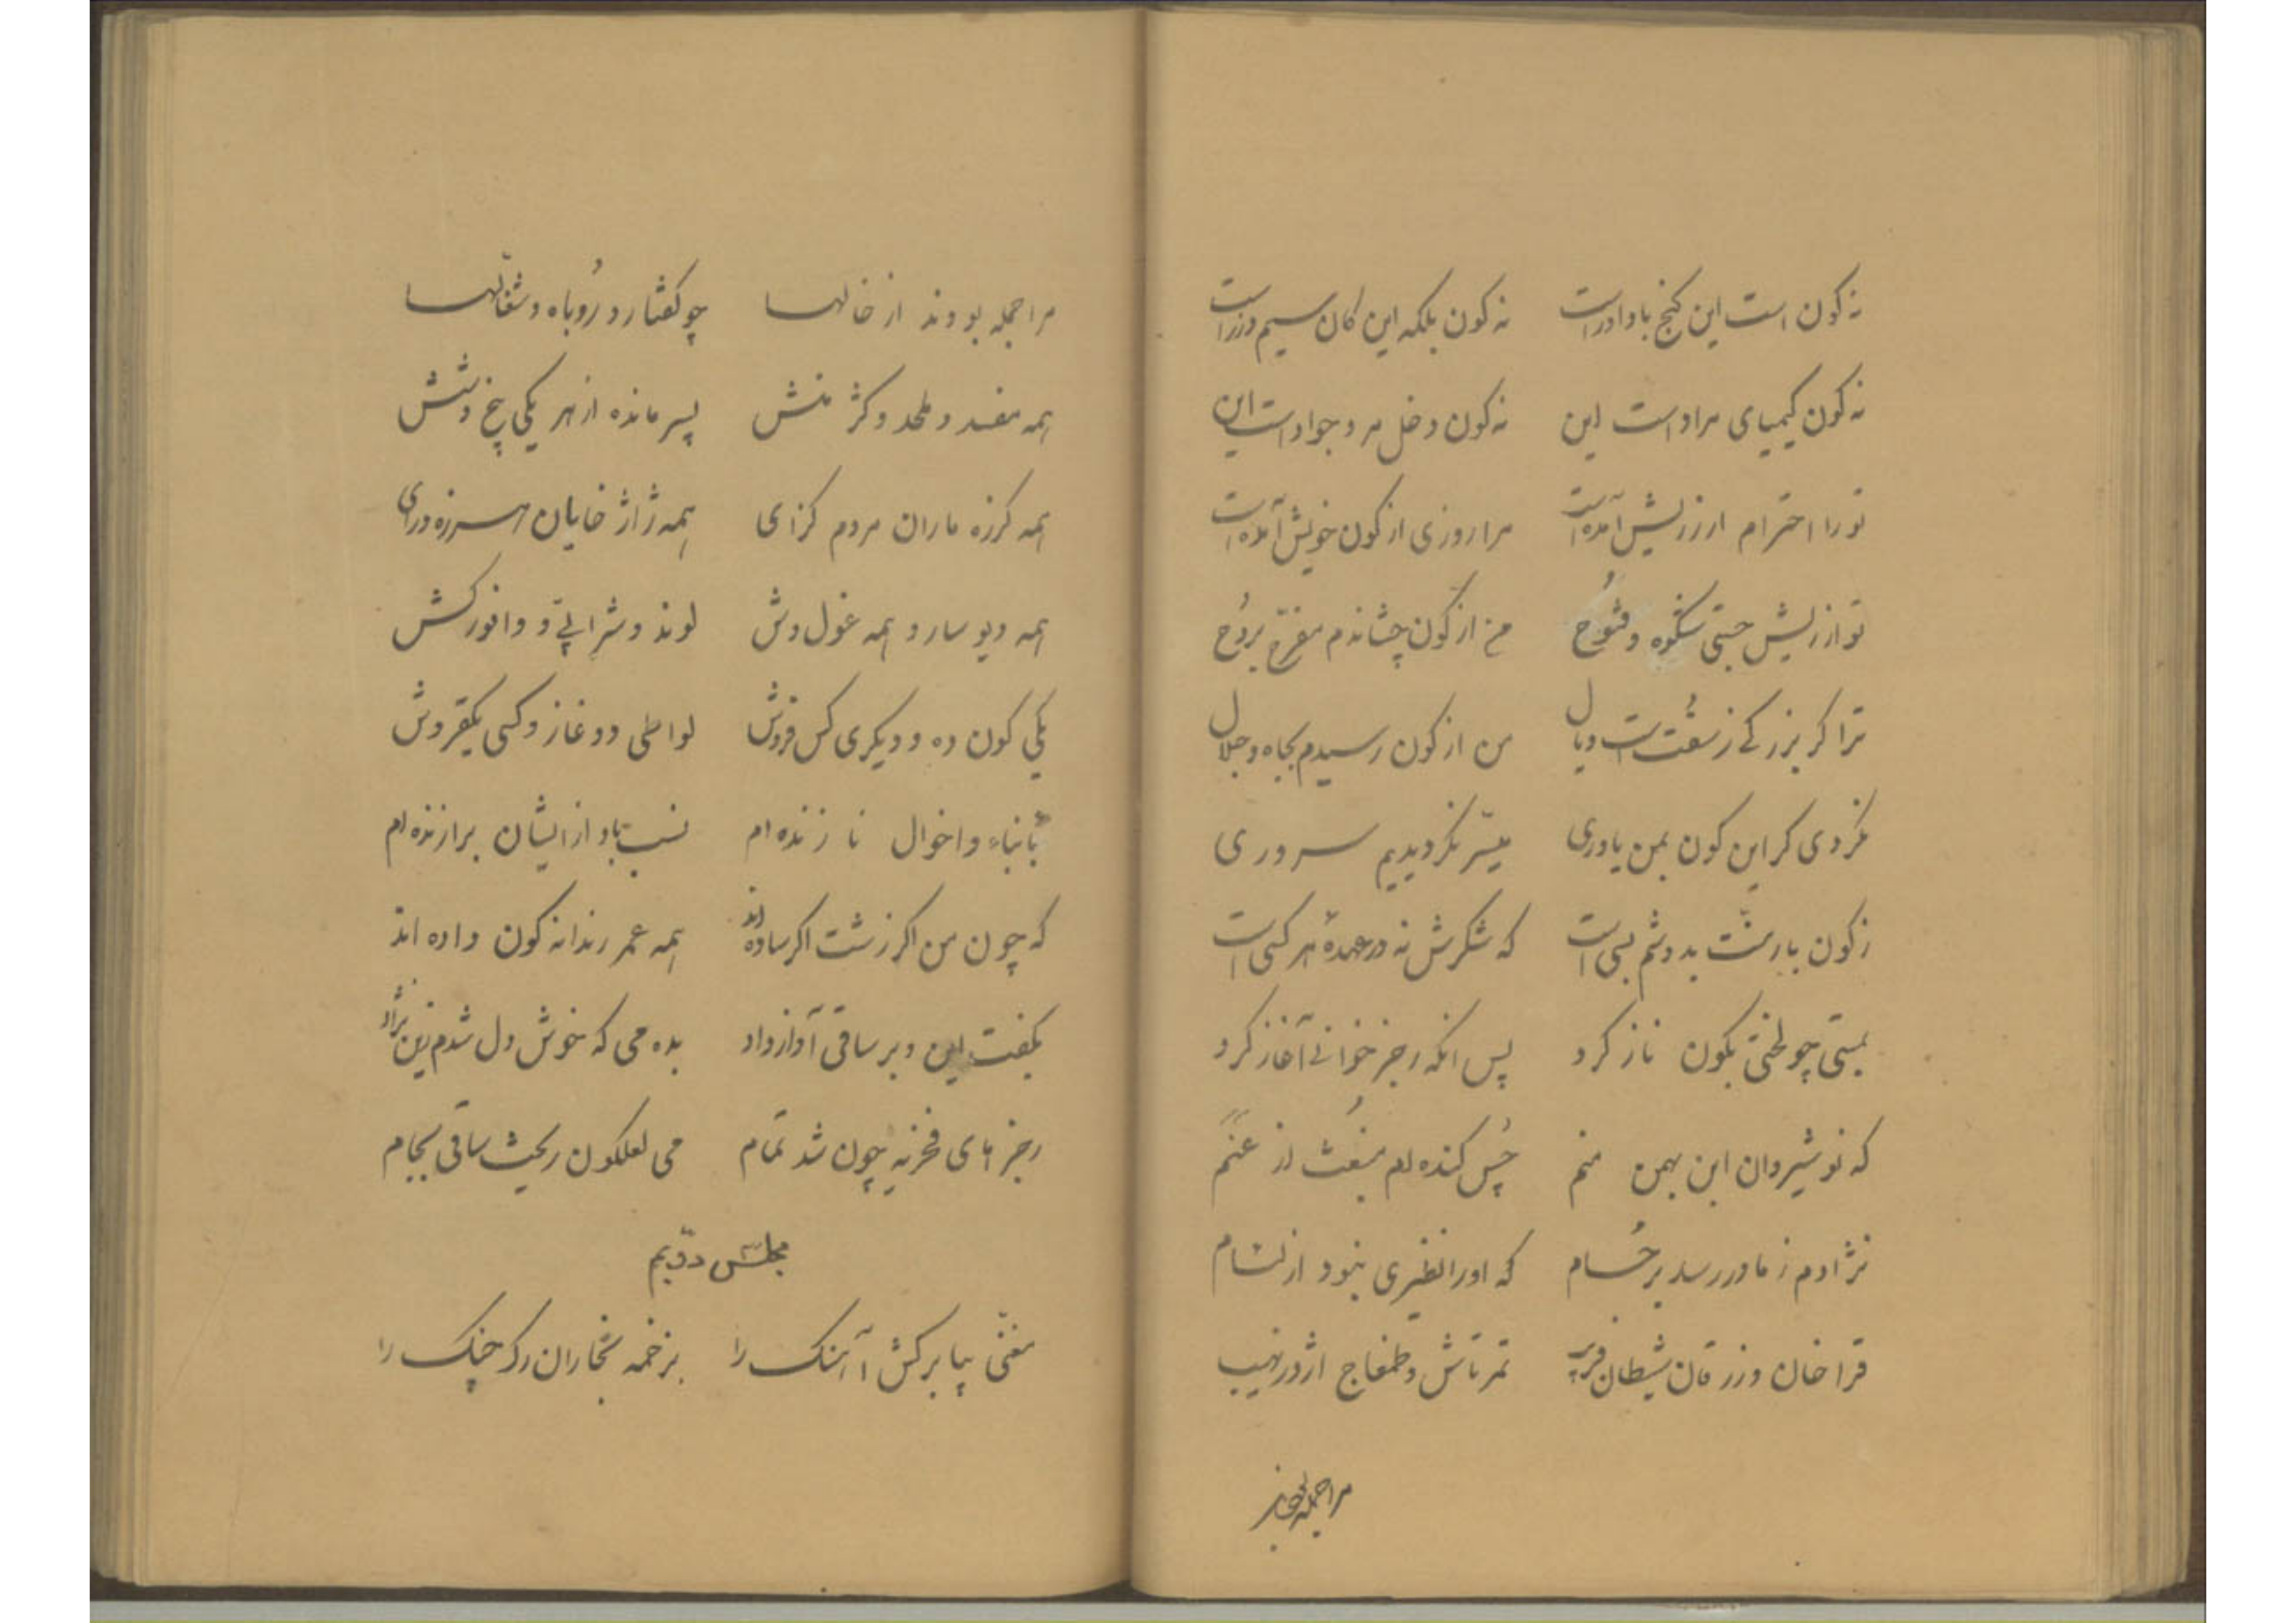 نه کون است این کنج بادآور است نه کون بلکه این کان سیم و زر است
نه کون کیمیای مراد است این نه کون دخل مرد جواد است این
تو را احترام ار ز ریش آمده است مرا روزی از کون خویش آمده است
تو از ریش جستی شکوه و فتوح من از کون چشاندم مفرح بروح
ترا کر بزرکی ز سفت است و یال من از کون رسیدم بجاه و جلال
نکردی کر این کون بمن یاوری میسّر نکردیدیم سروری
ز کون بار منّت بدوشم بسی است که شکرش نه در عهدهٔ هر کسی است
بمستی چو لختی بکون ناز کرد پس انکه رجز خوانی آغاز کرد
که نوشیروان ابن بهمن منم چُس کنده ام
نژادم ز مادر رسد بر حُسام که او را نظیری نبود از لئام
قراخان و زرقان شیطان فریب تمرتاش و طمغاج اژدر نهیب
مرا جمله
مرا جمله بودند از خالها چو کفتار و رُوباه و شغّالها
همه مفسد و ملحد و کژ منش پسر مانده از هر یکی پنج و شش
همه کرزه ماران مردم کزای همه ژاژ خایان هرزه درای
همه دیو سار و همه غول وش لوند و شراپی و وافور کش
یکی کون ده و دیکری کس فروش لواطی دو غاز و کسی یکقروش
بآنباء و اخوال نازنده ام نسب باد از ایشان برازنده ام
که چون من اکر زشت اکر ساده اند همه عمر رندانه کون داده اند
بکفت این و بر ساقی آواز داد بده می که خوش دل شدم زین نژاد
رجزهای فخریه چون شد تمام می لعلکون ریخت ساقی بجام
مجلس دوّیم
مغنّی بیا برکش آهنک را بزخمه بخاران رک چنک را